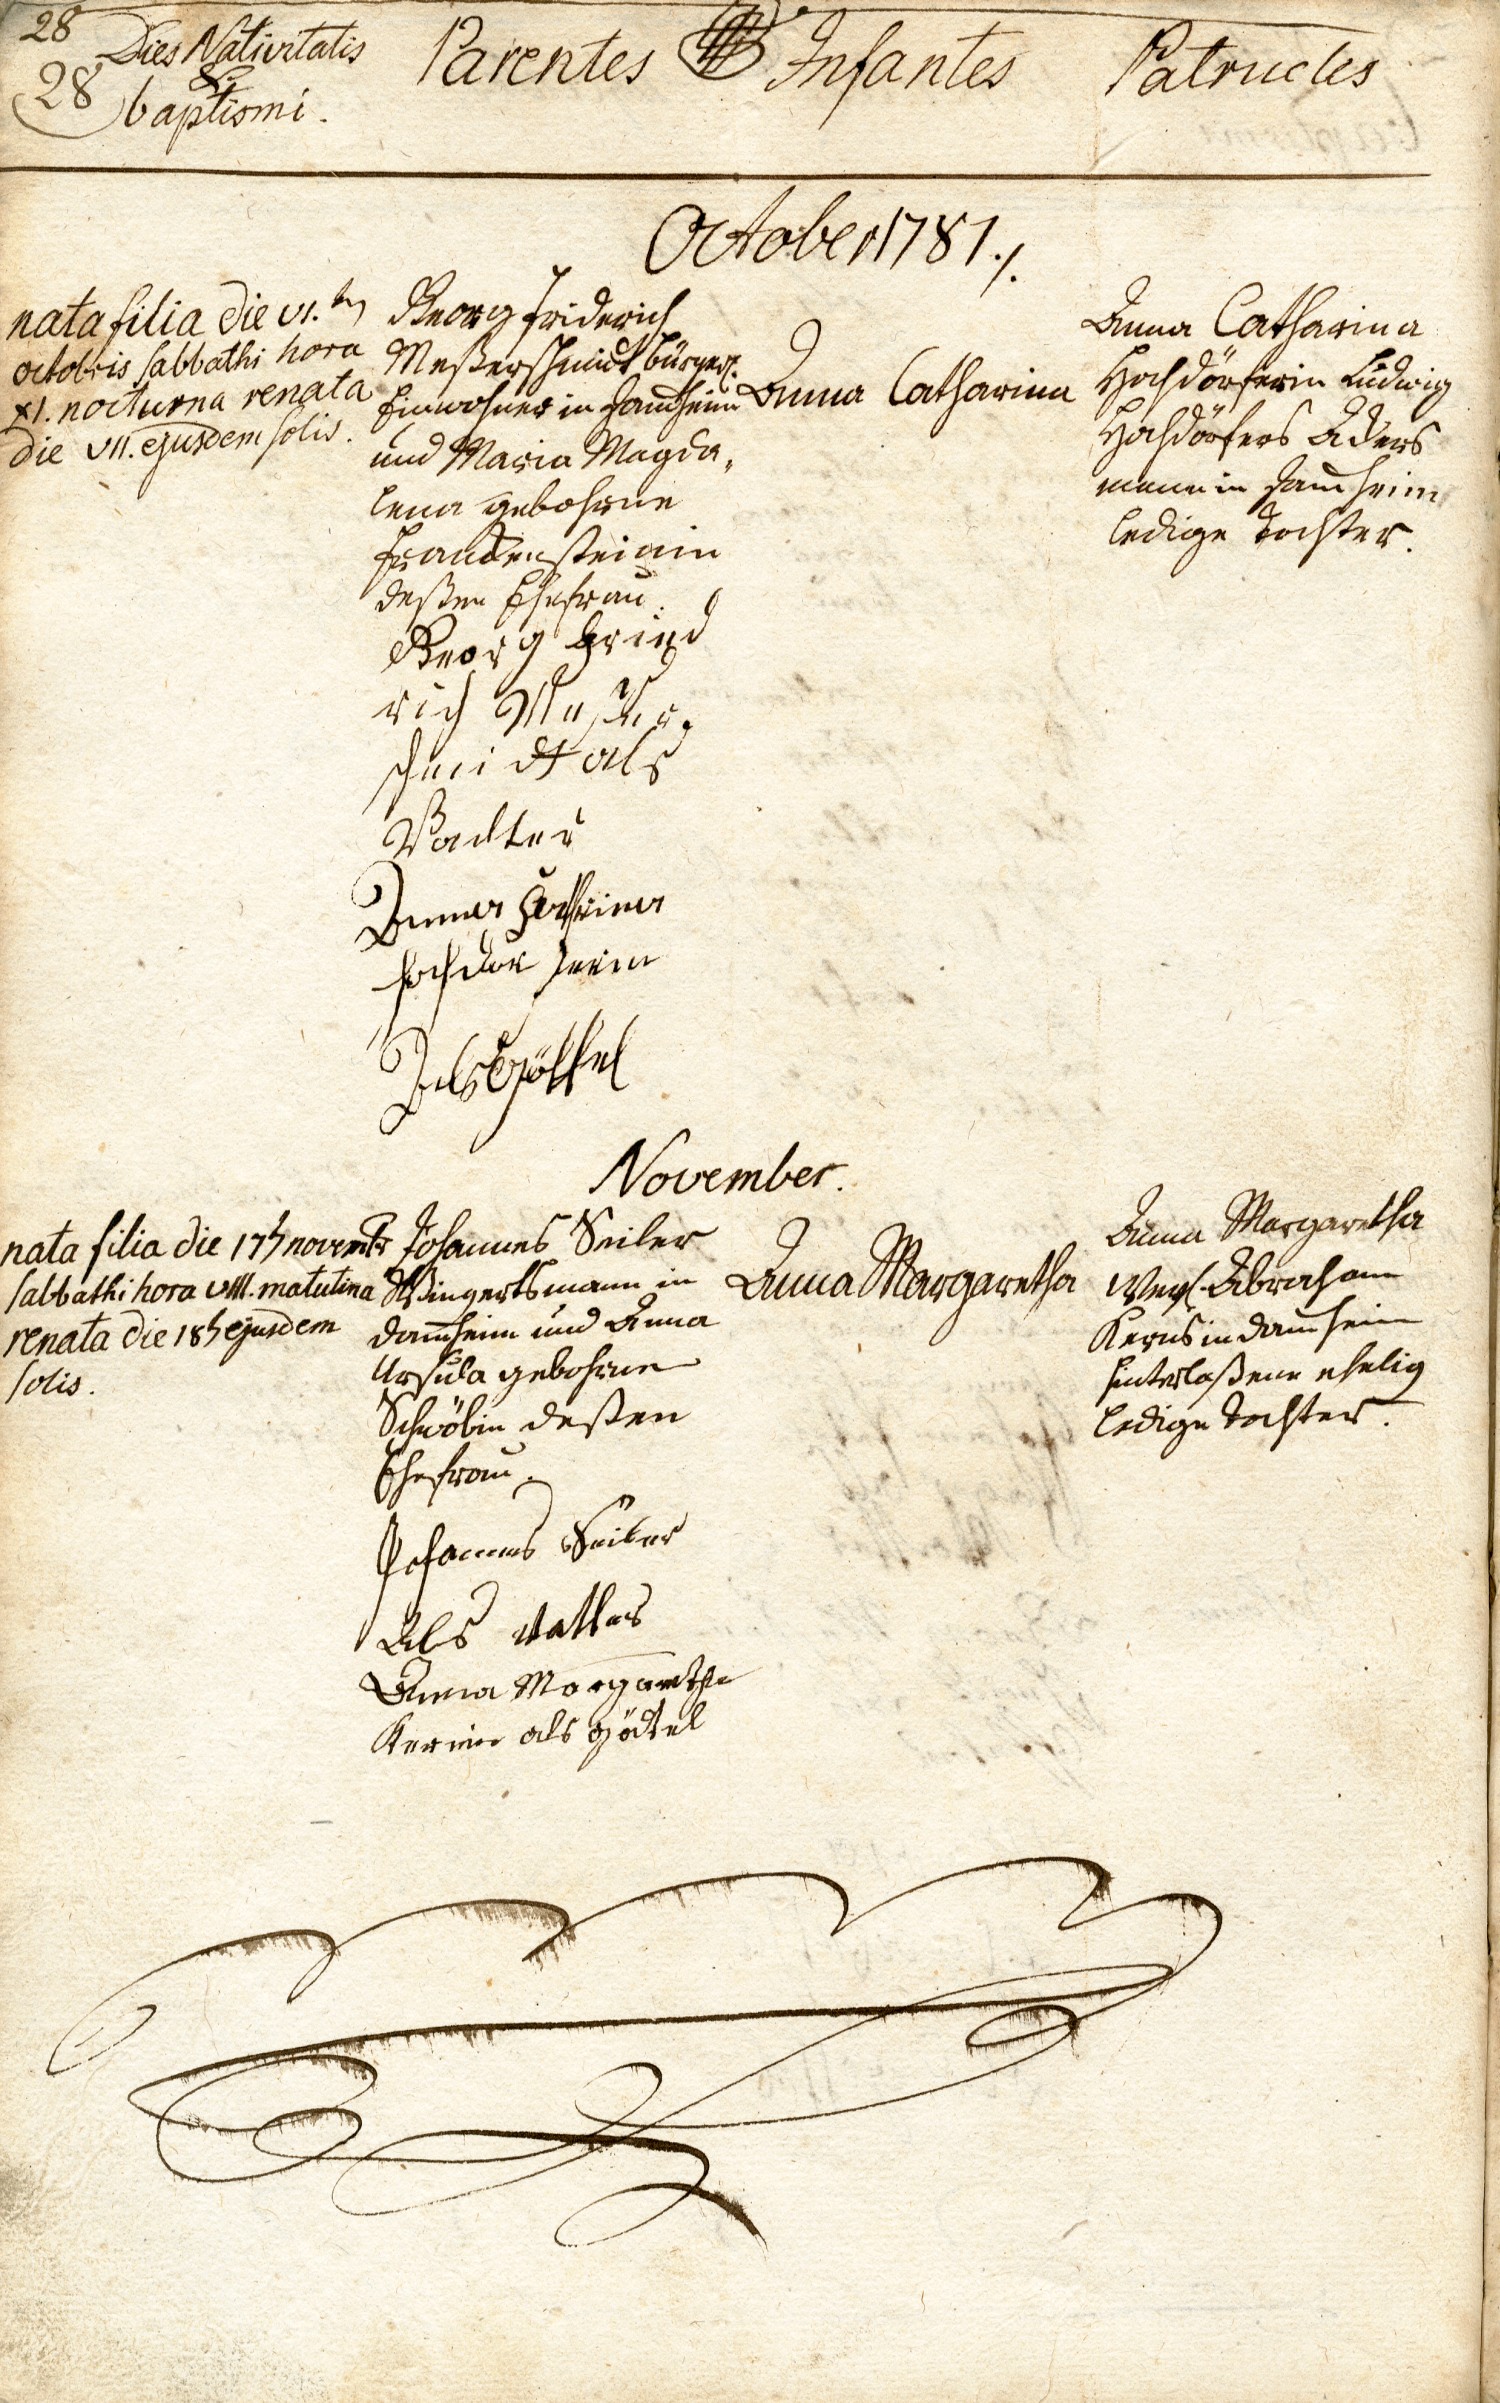 28
28
Dies Nativitatis
&
baptismi.
Parentes
Infantes
Patrueles
October 1781./.
nata filia die VI.
octobris sabbathi hora
XI. nocturna renata
die VII. ejusdem solis.
Georg Friderich
Meßerschmidt bürger.
Einwohner in Damheim
und Maria Magda„
lena gebohrne
Franckensteinin
deßen Ehefrau.
Georg Fried
rich Meßer.
schmidt als
Vadter
Anna Cathrina
hochdorferin
Als Göttel
Anna Catharina
Anna Catharina
Hochdörferin Ludwig
Hochdörfers Ackers
mann in Damheim
ledige Tochter.
November.
nata filia die 17 novembr
sabbathi hora VIII. matutina
renata die 18 ejusdem
solis.
Johannes Seiler
Wingertsmann in
Damheim und Anna
Ursula gebohrne
Schwöbin deßen
Ehefrau.
Johannes Seiler
Als Vatter
Anna Margaretha
Kernin als götel
Anna Margaretha
Anna Margaretha
Weyl. Abraham
Kerns in Damheim
hinterlaßene ehelig
ledige Tochter.